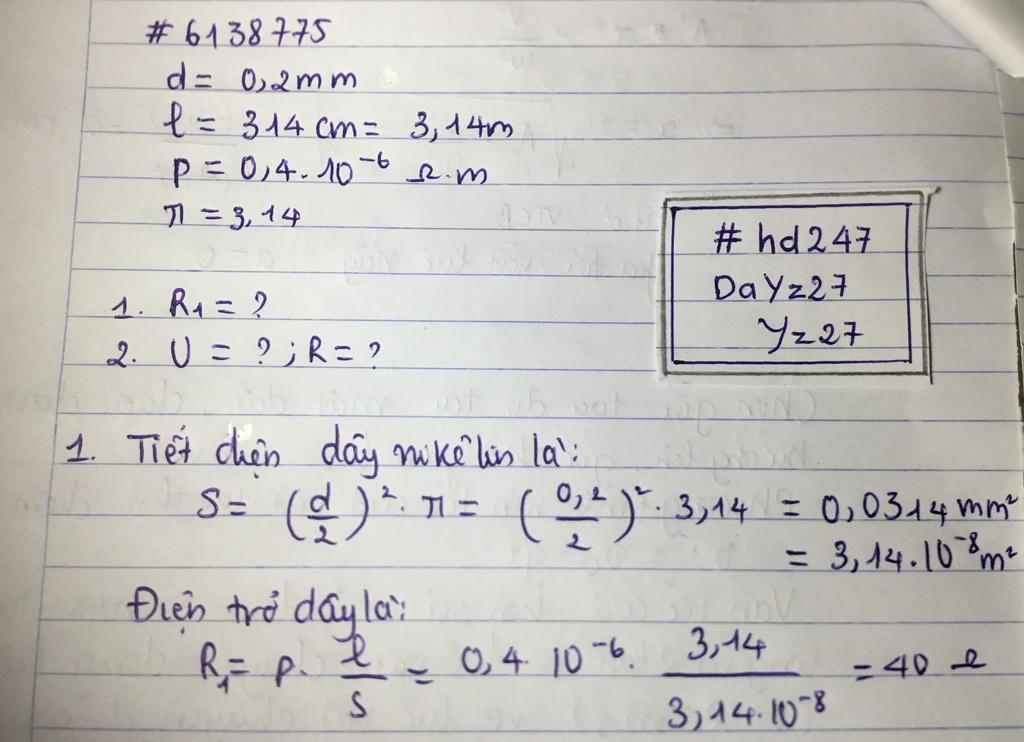 # 6138775
d = 0,2mm
l = 314 cm = 3,14m
ρ = 0,4.10⁻⁶ Ω.m
π = 3,14
# hd247
DaYz27
Yz27
1. R₁ = ?
2. U = ? ; R = ?
1. Tiết diện dây nikêlin là:
S = (d/2)². π = (0,2/2)². 3,14 = 0,0314 mm²
= 3,14.10⁻⁸m²
Điện trở dây là:
R₁ = ρ. l/S = 0,4. 10⁻⁶. 3,14/3,14.10⁻⁸ = 40 Ω